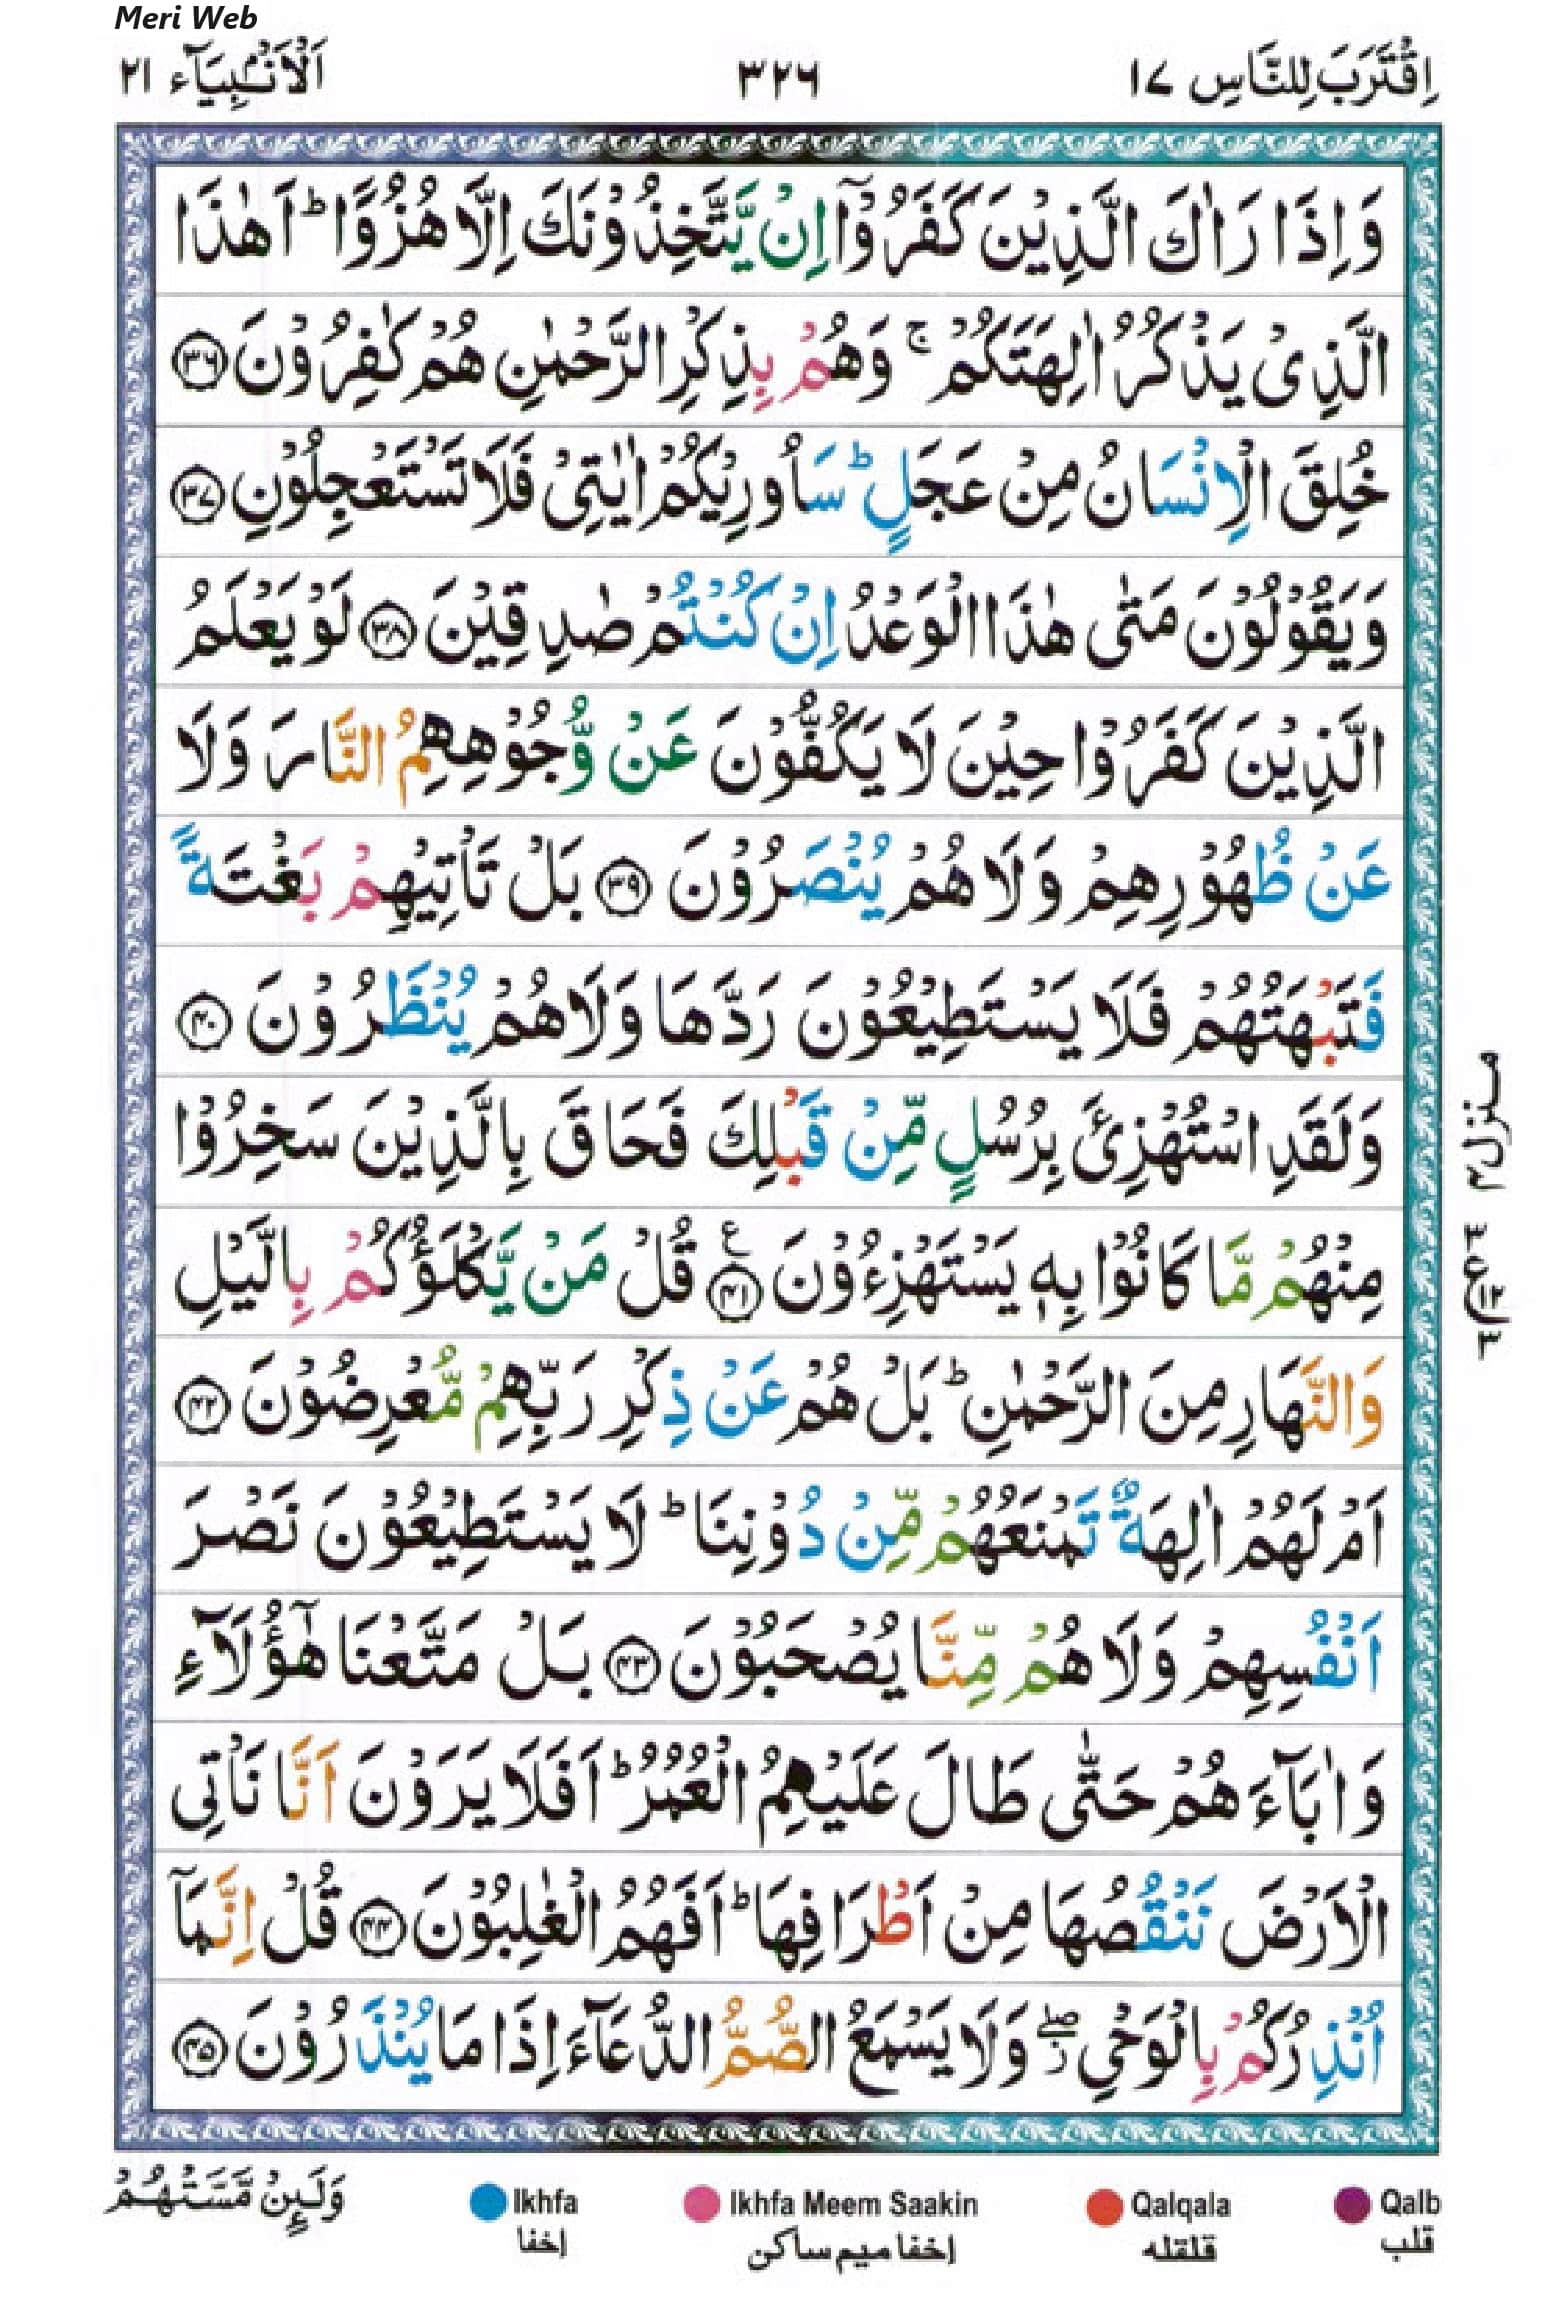 Meri Web
اِقْتَرَبَ لِلنَّاسِ ١٧
٣٢٦
اَلْاَنْۢبِيَآء ٢١
وَاِذَا رَاٰكَ الَّذِيْنَ كَفَرُوْۤا اِنْ يَّتَّخِذُوْنَكَ اِلَّا هُزُوًا ؕ اَهٰذَا
الَّذِىْ يَذْكُرُ اٰلِهَتَكُمْ ۚ وَهُمْ بِذِكْرِ الرَّحْمٰنِ هُمْ كٰفِرُوْنَ ﴿۳۶﴾
خُلِقَ الْاِنْسَانُ مِنْ عَجَلٍ ؕ سَاُورِيْكُمْ اٰيٰتِىْ فَلَا تَسْتَعْجِلُوْنِ ﴿۳۷﴾
وَيَقُوْلُوْنَ مَتٰى هٰذَا الْوَعْدُ اِنْ كُنْتُمْ صٰدِقِيْنَ ﴿۳۸﴾ لَوْ يَعْلَمُ
الَّذِيْنَ كَفَرُوْا حِيْنَ لَا يَكُفُّوْنَ عَنْ وُّجُوْهِهِمُ النَّارَ وَلَا
عَنْ ظُهُوْرِهِمْ وَلَا هُمْ يُنْصَرُوْنَ ﴿۳۹﴾ بَلْ تَاْتِيْهِمْ بَغْتَةً
فَتَبْهَتُهُمْ فَلَا يَسْتَطِيْعُوْنَ رَدَّهَا وَلَا هُمْ يُنْظَرُوْنَ ﴿۴۰﴾
وَلَقَدِ اسْتُهْزِئَ بِرُسُلٍ مِّنْ قَبْلِكَ فَحَاقَ بِالَّذِيْنَ سَخِرُوْا
مِنْهُمْ مَّا كَانُوْا بِهٖ يَسْتَهْزِءُوْنَ ﴿۴۱﴾ ع قُلْ مَنْ يَّكْلَؤُكُمْ بِالَّيْلِ
وَالنَّهَارِ مِنَ الرَّحْمٰنِ ؕ بَلْ هُمْ عَنْ ذِكْرِ رَبِّهِمْ مُّعْرِضُوْنَ ﴿۴۲﴾
اَمْ لَهُمْ اٰلِهَةٌ تَمْنَعُهُمْ مِّنْ دُوْنِنَا ؕ لَا يَسْتَطِيْعُوْنَ نَصْرَ
اَنْفُسِهِمْ وَلَا هُمْ مِّنَّا يُصْحَبُوْنَ ﴿۴۳﴾ بَلْ مَتَّعْنَا هٰٓؤُلَآءِ
وَاٰبَآءَهُمْ حَتّٰى طَالَ عَلَيْهِمُ الْعُمُرُ ؕ اَفَلَا يَرَوْنَ اَنَّا نَاْتِى
الْاَرْضَ نَنْقُصُهَا مِنْ اَطْرَافِهَا ؕ اَفَهُمُ الْغٰلِبُوْنَ ﴿۴۴﴾ قُلْ اِنَّمَاۤ
اُنْذِرُكُمْ بِالْوَحْىِ ۖ ز وَلَا يَسْمَعُ الصُّمُّ الدُّعَآءَ اِذَا مَا يُنْذَرُوْنَ ﴿۴۵﴾
منزل ٤
٣
ع
١٢
٣
وَلَٮِٕنْ مَّسَّتْهُمْ
Ikhfa
إخفا
Ikhfa Meem Saakin
إخفا ميم ساكن
Qalqala
قلقله
Qalb
قلب